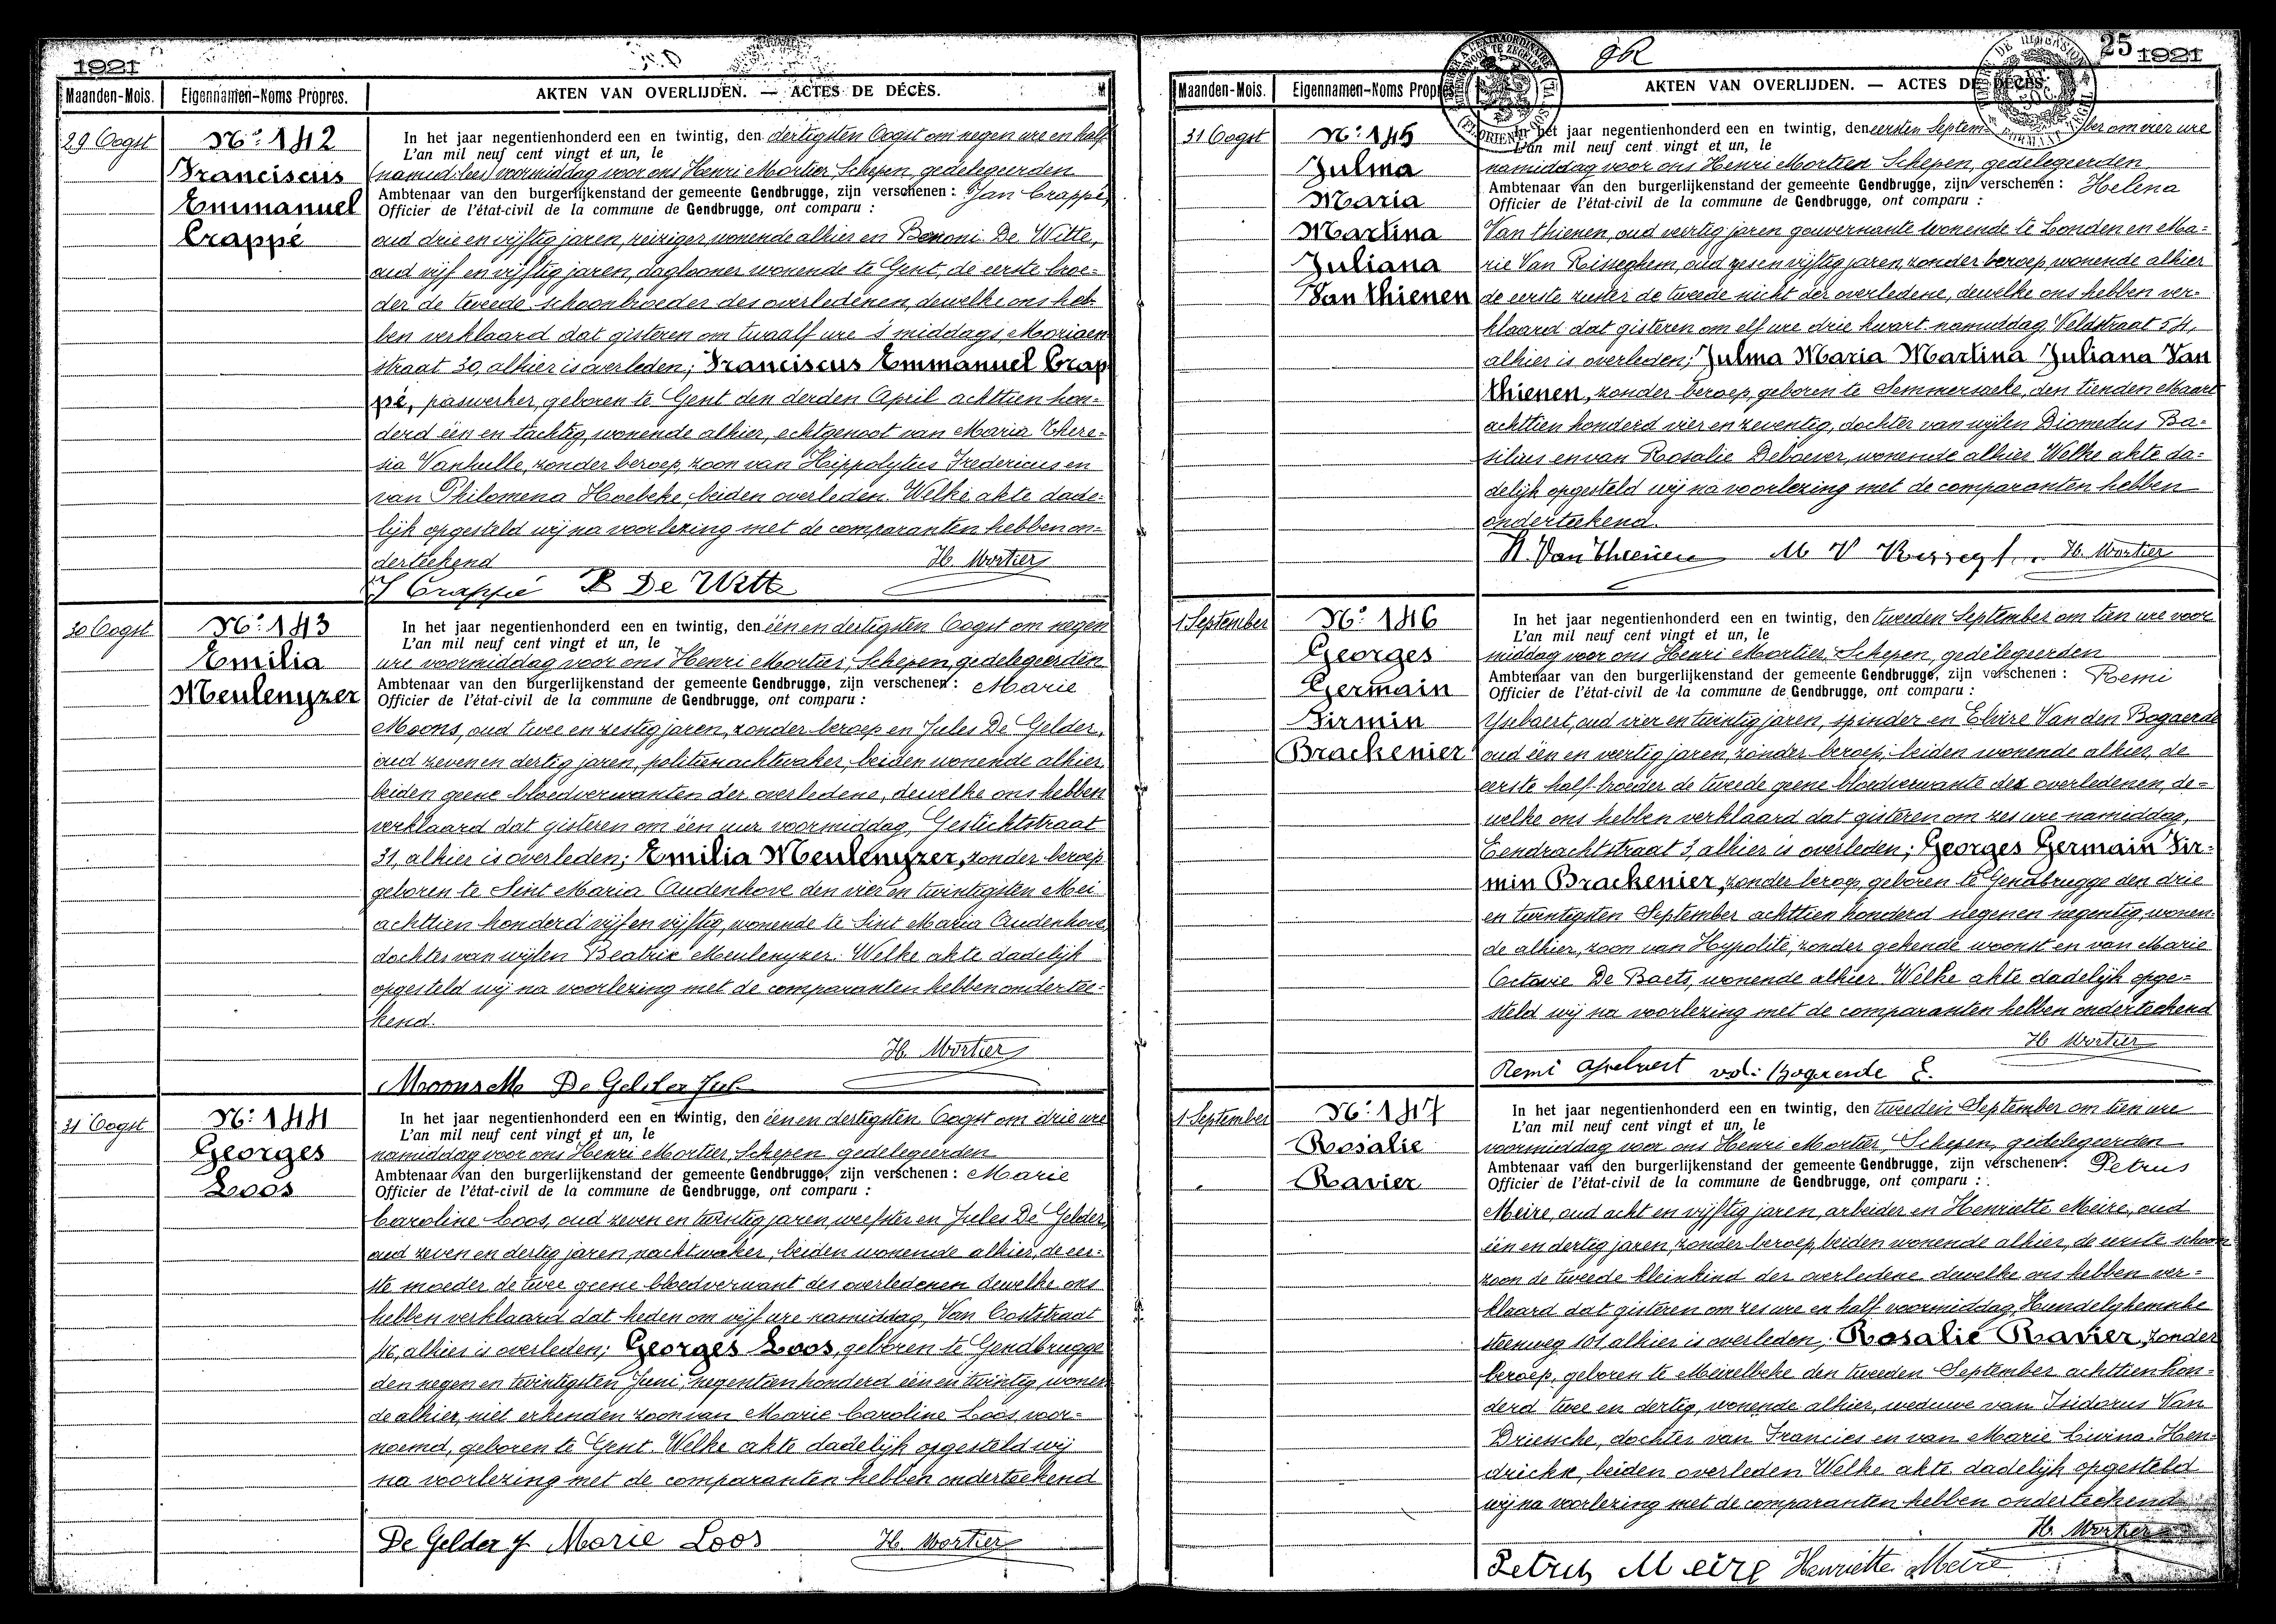 1921
Maanden-Mois.
Eigennamen-Noms Propres.
AKTEN VAN OVERLIJDEN. — ACTES DE DÉCÈS.
29 Oogst
No: 142
Franciscus
Emmanuel
Crappé
In het jaar negentienhonderd een en twintig, den dertigsten Oogst om negen ure en half
L'an mil neuf cent vingt et un, le
voormiddag voor ons Henri Mortier Schepen, gedelegeerden
Ambtenaar van den burgerlijkenstand der gemeente Gendbrugge, zijn verschenen : Jan Crappé,
Officier de l'état-civil de la commune de Gendbrugge, ont comparu :
oud drie en vijftig jaren, reiziger wonende alhier en Benoni De Witte,
oud vijf en vijftig jaren, daglooner wonende te Gent, de eerste broe-
der de tweede schoonbroeder des overledenen, dewelke ons heb-
ben verklaard dat gisteren om twaalf ure 's middags, Mooriaen
straat 30, alhier is overleden; Franciscus Emmanuel Crap
pé, paswerker, geboren te Gent den derden April achttien hon-
derd één en tachtig, wonende alhier, echtgenoot van Maria There-
sia Vanhulle, zonder beroep, zoon van Hippolytus Fredericus en
van Philomena Hoebeke, beiden overleden. Welke akte dade-
lijk opgesteld wij na voorlezing met de comparanten hebben on-
derteekend
H. Mortier
J Crappé B De Witte
30 Oogst
No: 143
Emilia
Meulenyzer
In het jaar negentienhonderd een en twintig, den één en dertigsten Oogst om negen
L'an mil neuf cent vingt et un, le
ure voormiddag voor ons Henri Mortier, Schepen, gedelegeerden
Ambtenaar van den burgerlijkenstand der gemeente Gendbrugge, zijn verschenen : Marie
Officier de l'état-civil de la commune de Gendbrugge, ont comparu :
Moons, oud twee en zestig jaren, zonder beroep en Jules De Gelder,
oud zeven en dertig jaren, politienachtwaker, beiden wonende alhier,
beiden geene bloedverwanten der overledene, dewelke ons hebben
verklaard dat gisteren om één uur voormiddag, Gestichtstraat
31, alhier is overleden; Emilia Meulenyzer, zonder beroep
geboren te Sint Maria Oudenhove den vier en twintigsten Mei
achttien honderd vijf en vijftig, wonende te Sint Maria Oudenhove,
dochter van wijlen Beatrix Meulenyzer. Welke akte dadelijk
opgesteld wij na voorlezing met de comparanten hebben ondertee-
kend.
H. Mortier
Moons M De Gelder Jul
31 Oogst
No: 144
Georges
Loos
In het jaar negentienhonderd een en twintig, den één en dertigsten Oogst om drie ure
L'an mil neuf cent vingt et un, le
namiddag voor ons Henri Mortier, Schepen gedelegeerden
Ambtenaar van den burgerlijkenstand der gemeente Gendbrugge, zijn verschenen : Marie
Officier de l'état-civil de la commune de Gendbrugge, ont comparu :
Caroline Loos, oud zeven en twintig jaren weefster en Jules De Gelder,
oud zeven en dertig jaren, nachtwaker, beiden wonende alhier, de eer-
ste moeder de twee geene bloedverwant des overledenen dewelke ons
hebben verklaard dat heden om vijf ure namiddag, Van Ooststraat
46, alhier is overleden; Georges Loos, geboren te Gendbrugge
den negen en twintigsten Juni, negentienhonderd één en twintig, wonen
de alhier, niet erkenden zoon van Marie Caroline Loos, voor-
noemd, geboren te Gent. Welke akte dadelijk opgesteld wij
na voorlezing met de comparanten hebben onderteekend
De Gelder J Marie Loos H. Mortier
25 1921
Maanden-Mois.
Eigennamen-Noms Propres.
AKTEN VAN OVERLIJDEN. — ACTES DE DÉCÈS.
31 Oogst
No: 145
Julma
Maria
Martina
Juliana
Van thienen
In het jaar negentienhonderd een en twintig, den eersten September om vier ure
L'an mil neuf cent vingt et un, le
namiddag voor ons Henri Mortier Schepen, gedelegeerden
Ambtenaar van den burgerlijkenstand der gemeente Gendbrugge, zijn verschenen : Helena
Officier de l'état-civil de la commune de Gendbrugge, ont comparu :
Van thienen, oud veertig jaren gouvernante wonende te Londen en Ma-
rie Van Risseghem, oud zes en vijftig jaren, zonder beroep, wonende alhier
de eerste zuster de tweede nicht der overledene, dewelke ons hebben ver-
klaard dat gisteren om elf ure drie kwart namiddag Veldstraat 54,
alhier is overleden; Julma Maria Martina Juliana Van
thienen, zonder beroep, geboren te Semmersaeke, den tienden Maart
achttien honderd vier en zeventig, dochter van wijlen Diomedus Ba-
silius en van Rosalie Deboever, wonende alhier Welke akte da-
delijk opgesteld wij na voorlezing met de comparanten hebben
onderteekend.
H. Van Thienen M V Rissegh H. Mortier
1 September
No: 146
Georges
Germain
Firmin
Brackenier
In het jaar negentienhonderd een en twintig, den tweeden September om tien ure voor
L'an mil neuf cent vingt et un, le
middag voor ons Henri Mortier, Schepen, gedelegeerden
Ambtenaar van den burgerlijkenstand der gemeente Gendbrugge, zijn verschenen : Remi
Officier de l'état-civil de la commune de Gendbrugge, ont comparu :
Ysebaert, oud vier en twintig jaren, spinder en Elvire Van den Bogaerde
oud één en veertig jaren, zonder beroep, beiden wonende alhier, de
eerste half-broeder de tweede geene bloedverwante des overledenen, de-
welke ons hebben verklaard dat gisteren om zes ure namiddag,
Eendrachtstraat 3, alhier is overleden; Georges Germain Fir-
min Brackenier, zonder beroep, geboren te Gendbrugge den drie
en twintigsten September achttien honderd negen en negentig, wonen
de alhier, zoon van Hypolite, zonder gekende woonst en van Marie
Octavie De Baets, wonende alhier. Welke akte dadelijk opge-
steld wij na voorlezing met de comparanten hebben onderteekend
H Mortier
Remi Ysebaert vd: Bogaerde E.
1 September
No: 147
Rosalie
Ravier
In het jaar negentienhonderd een en twintig, den tweeden September om tien ure
L'an mil neuf cent vingt et un, le
voormiddag voor ons Henri Mortier, Schepen, gedelegeerden
Ambtenaar van den burgerlijkenstand der gemeente Gendbrugge, zijn verschenen : Petrus
Officier de l'état-civil de la commune de Gendbrugge, ont comparu :
Meire, oud acht en vijftig jaren, arbeider en Henriette Meire, oud
één en dertig jaren, zonder beroep, beiden wonende alhier, de eerste schoon
zoon de tweede kleinkind der overledene dewelke ons hebben ver-
klaard dat gisteren om zes ure en half voormiddag, Hundelghemsche
steenweg 101 alhier is overleden; Rosalie Ravier, zonder
beroep, geboren te Meirelbeke den tweeden September achttien hon-
derd twee en dertig, wonende alhier, weduwe van Isidorus Van
Driesche, dochter van Francies en van Marie Livina Hen-
drickx, beiden overleden Welke akte dadelijk opgesteld
wij na voorlezing met de comparanten hebben onderteekend
H. Mortier
Petrus Meire Henriette Meire